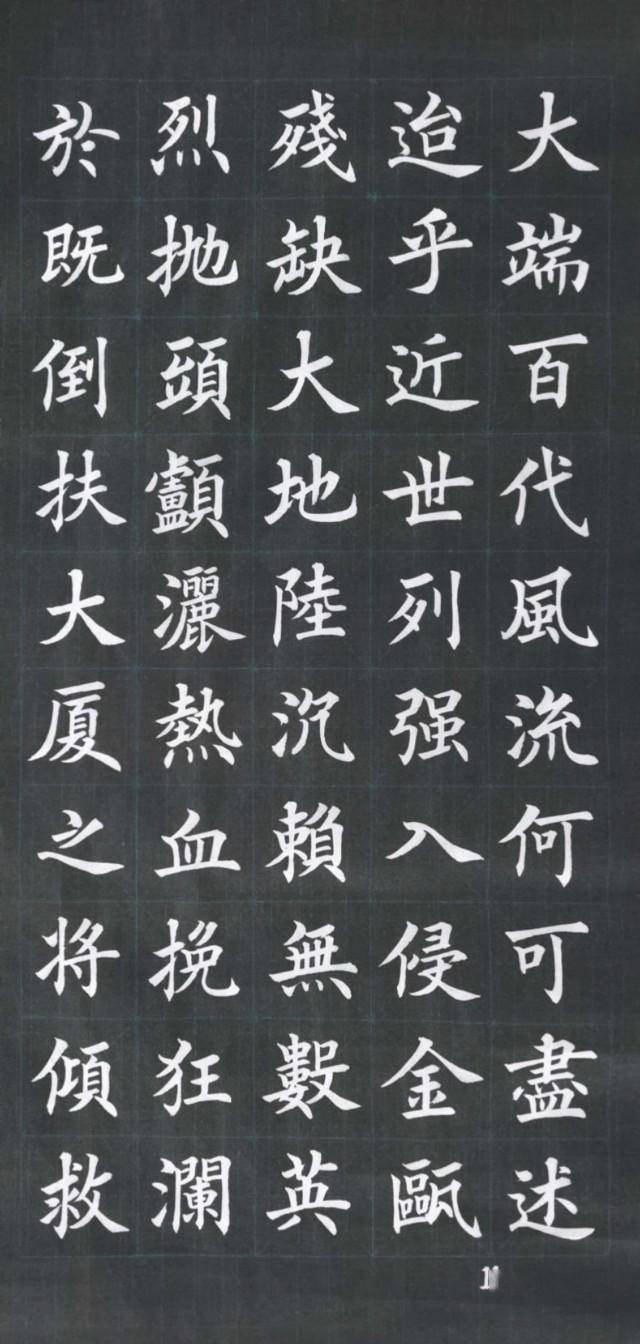 大端百代風流何可盡述
迨乎近世列强入侵金甌
殘缺大地陸沉賴無數英
烈抛頭顱灑熱血挽狂瀾
於既倒扶大厦之將傾救